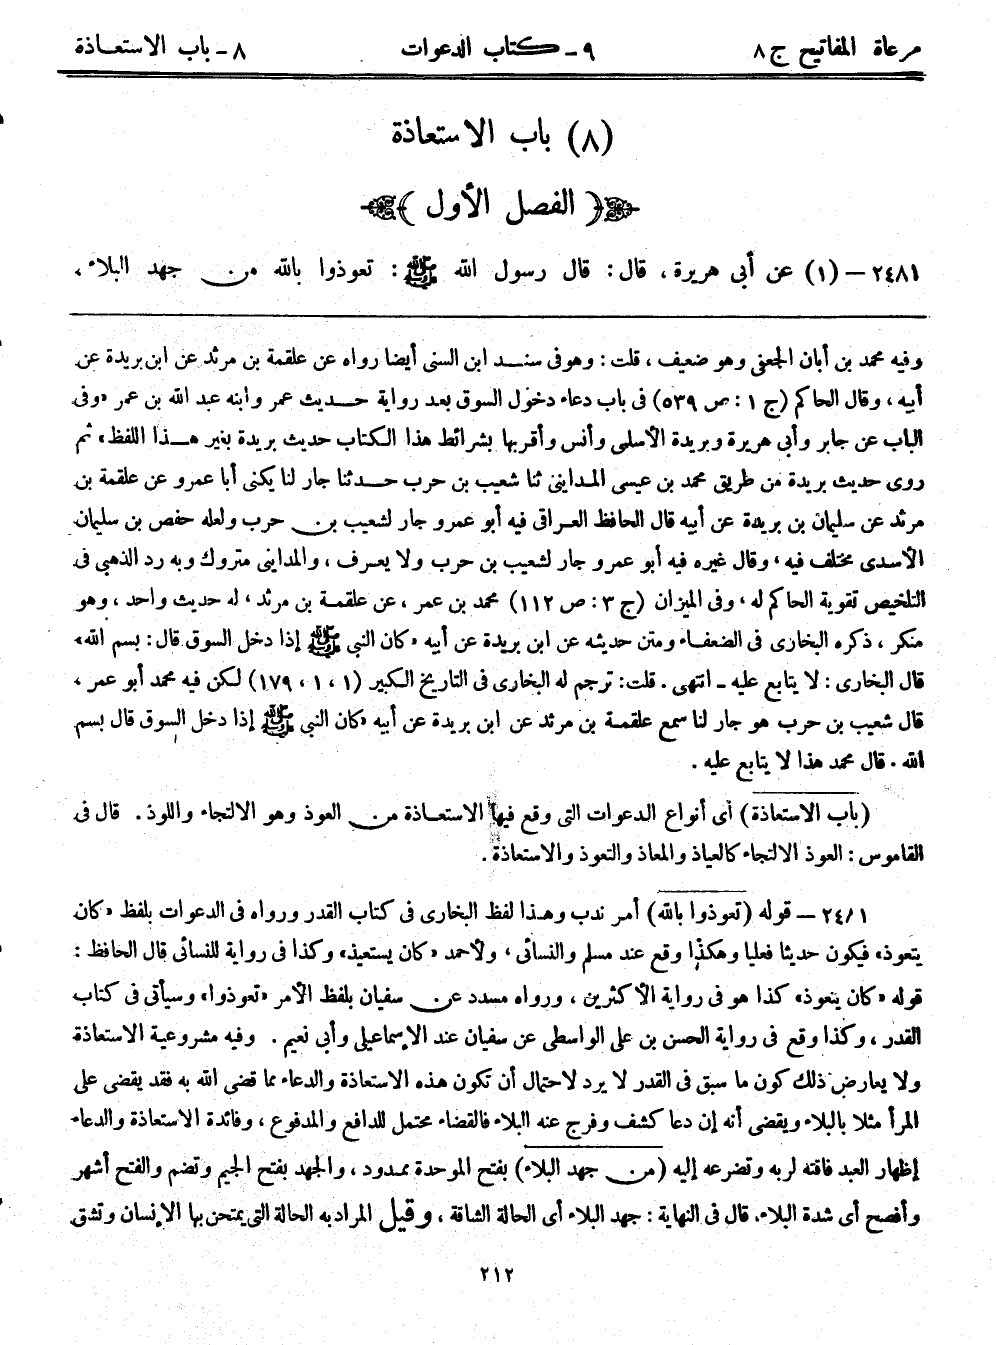 مرعاة المفاتيح ج ٨ ٩ - كتاب الدعوات ٨ - باب الاستعاذة
(٨) باب الاستعاذة
( الفصل الأول )
٢٤٨١ – (١) عن أبى هريرة، قال: قال رسول الله ﷺ: تعوذوا بالله من جهد البلاء،
وفيه محمد بن أبان الجعفى وهو ضعيف، قلت: وهو فى سند ابن السنى أيضا رواه عن علقمة بن مرثد عن ابن بريدة عن
أبيه، وقال الحاكم (ج ١ : ص ٥٣٩) فى باب دعاء دخول السوق بعد رواية حديث عمر وابنه عبد الله بن عمر «وفى
الباب عن جابر وأبي هريرة وبريدة الأسلمى وأنس وأقربها بشرائط هذا الكتاب حديث بريدة بغير هذا اللفظ» ثم
روى حديث بريدة من طريق محمد بن عيسى المداينى ثنا شعيب بن حرب حدثنا جار لنا يكنى أبا عمرو عن علقمة بن
مرثد عن سليمان بن بريدة عن أبيه قال الحافظ العراقى فيه أبو عمرو جار لشعيب بن حرب ولعله حفص بن سليمان
الأسدى مختلف فيه، وقال غيره فيه أبو عمرو جار لشعيب بن حرب ولا يعرف، والمداينى متروك وبه رد الذهبى فى
التلخيص تقوية الحاكم له، وفى الميزان (ج ٣ : ص ١١٢) محمد بن عمر، عن علقمة بن مرثد، له حديث واحد، وهو
منكر، ذكره البخارى فى الضعفاء ومتن حديثه عن ابن بريدة عن أبيه «كان النبي ﷺ إذا دخل السوق قال: بسم الله»
قال البخارى: لا يتابع عليه - انتهى. قلت: ترجم له البخارى فى التاريخ الكبير (١، ١، ١٧٩) لكن فيه محمد أبو عمر،
قال شعيب بن حرب هو جار لنا سمع علقمة بن مرثد عن ابن بريدة عن أبيه «كان النبي ﷺ إذا دخل السوق قال بسم
الله. قال محمد هذا لا يتابع عليه.
(باب الاستعاذة) أى أنواع الدعوات التى وقع فيها الاستعاذة من العوذ وهو الالتجاء واللوذ. قال فى
القاموس: العوذ الالتجاء كالعياذ والمعاذ والتعوذ والاستعاذة.
٢٤/١ – قوله (تعوذوا بالله) أمر ندب وهذا لفظ البخارى فى كتاب القدر ورواه فى الدعوات بلفظ «كان
يتعوذ» فيكون حديثا فعليا وهكذا وقع عند مسلم والنسائى، ولأحمد «كان يستعيذ» وكذا فى رواية للنسائى قال الحافظ:
قوله «كان يتعوذ» كذا هو فى رواية الأكثرين، ورواه مسدد عن سفيان بلفظ الأمر «تعوذوا» وسيأتى فى كتاب
القدر، وكذا وقع فى رواية الحسن بن على الواسطى عن سفيان عند الإسماعيلى وأبي نعيم. وفيه مشروعية الاستعاذة
ولا يعارض ذلك كون ما سبق فى القدر لا يرد لاحتمال أن تكون هذه الاستعاذة والدعاء مما قضى الله به فقد يقضى على
المرأ مثلا بالبلاء ويقضى أنه إن دعا كشف وفرج عنه البلاء فالقضاء محتمل للدافع والمدفوع، وفائدة الاستعاذة والدعاء
إظهار العبد فاقته لربه وتضرعه إليه (من جهد البلاء) بفتح الموحدة ممدود، والجهد بفتح الجيم وتضم والفتح أشهر
وأفصح أى شدة البلاء. قال فى النهاية: جهد البلاء أى الحالة الشاقة، وقيل المراد به الحالة التى يمتحن بها الإنسان وتشق
٢١٢